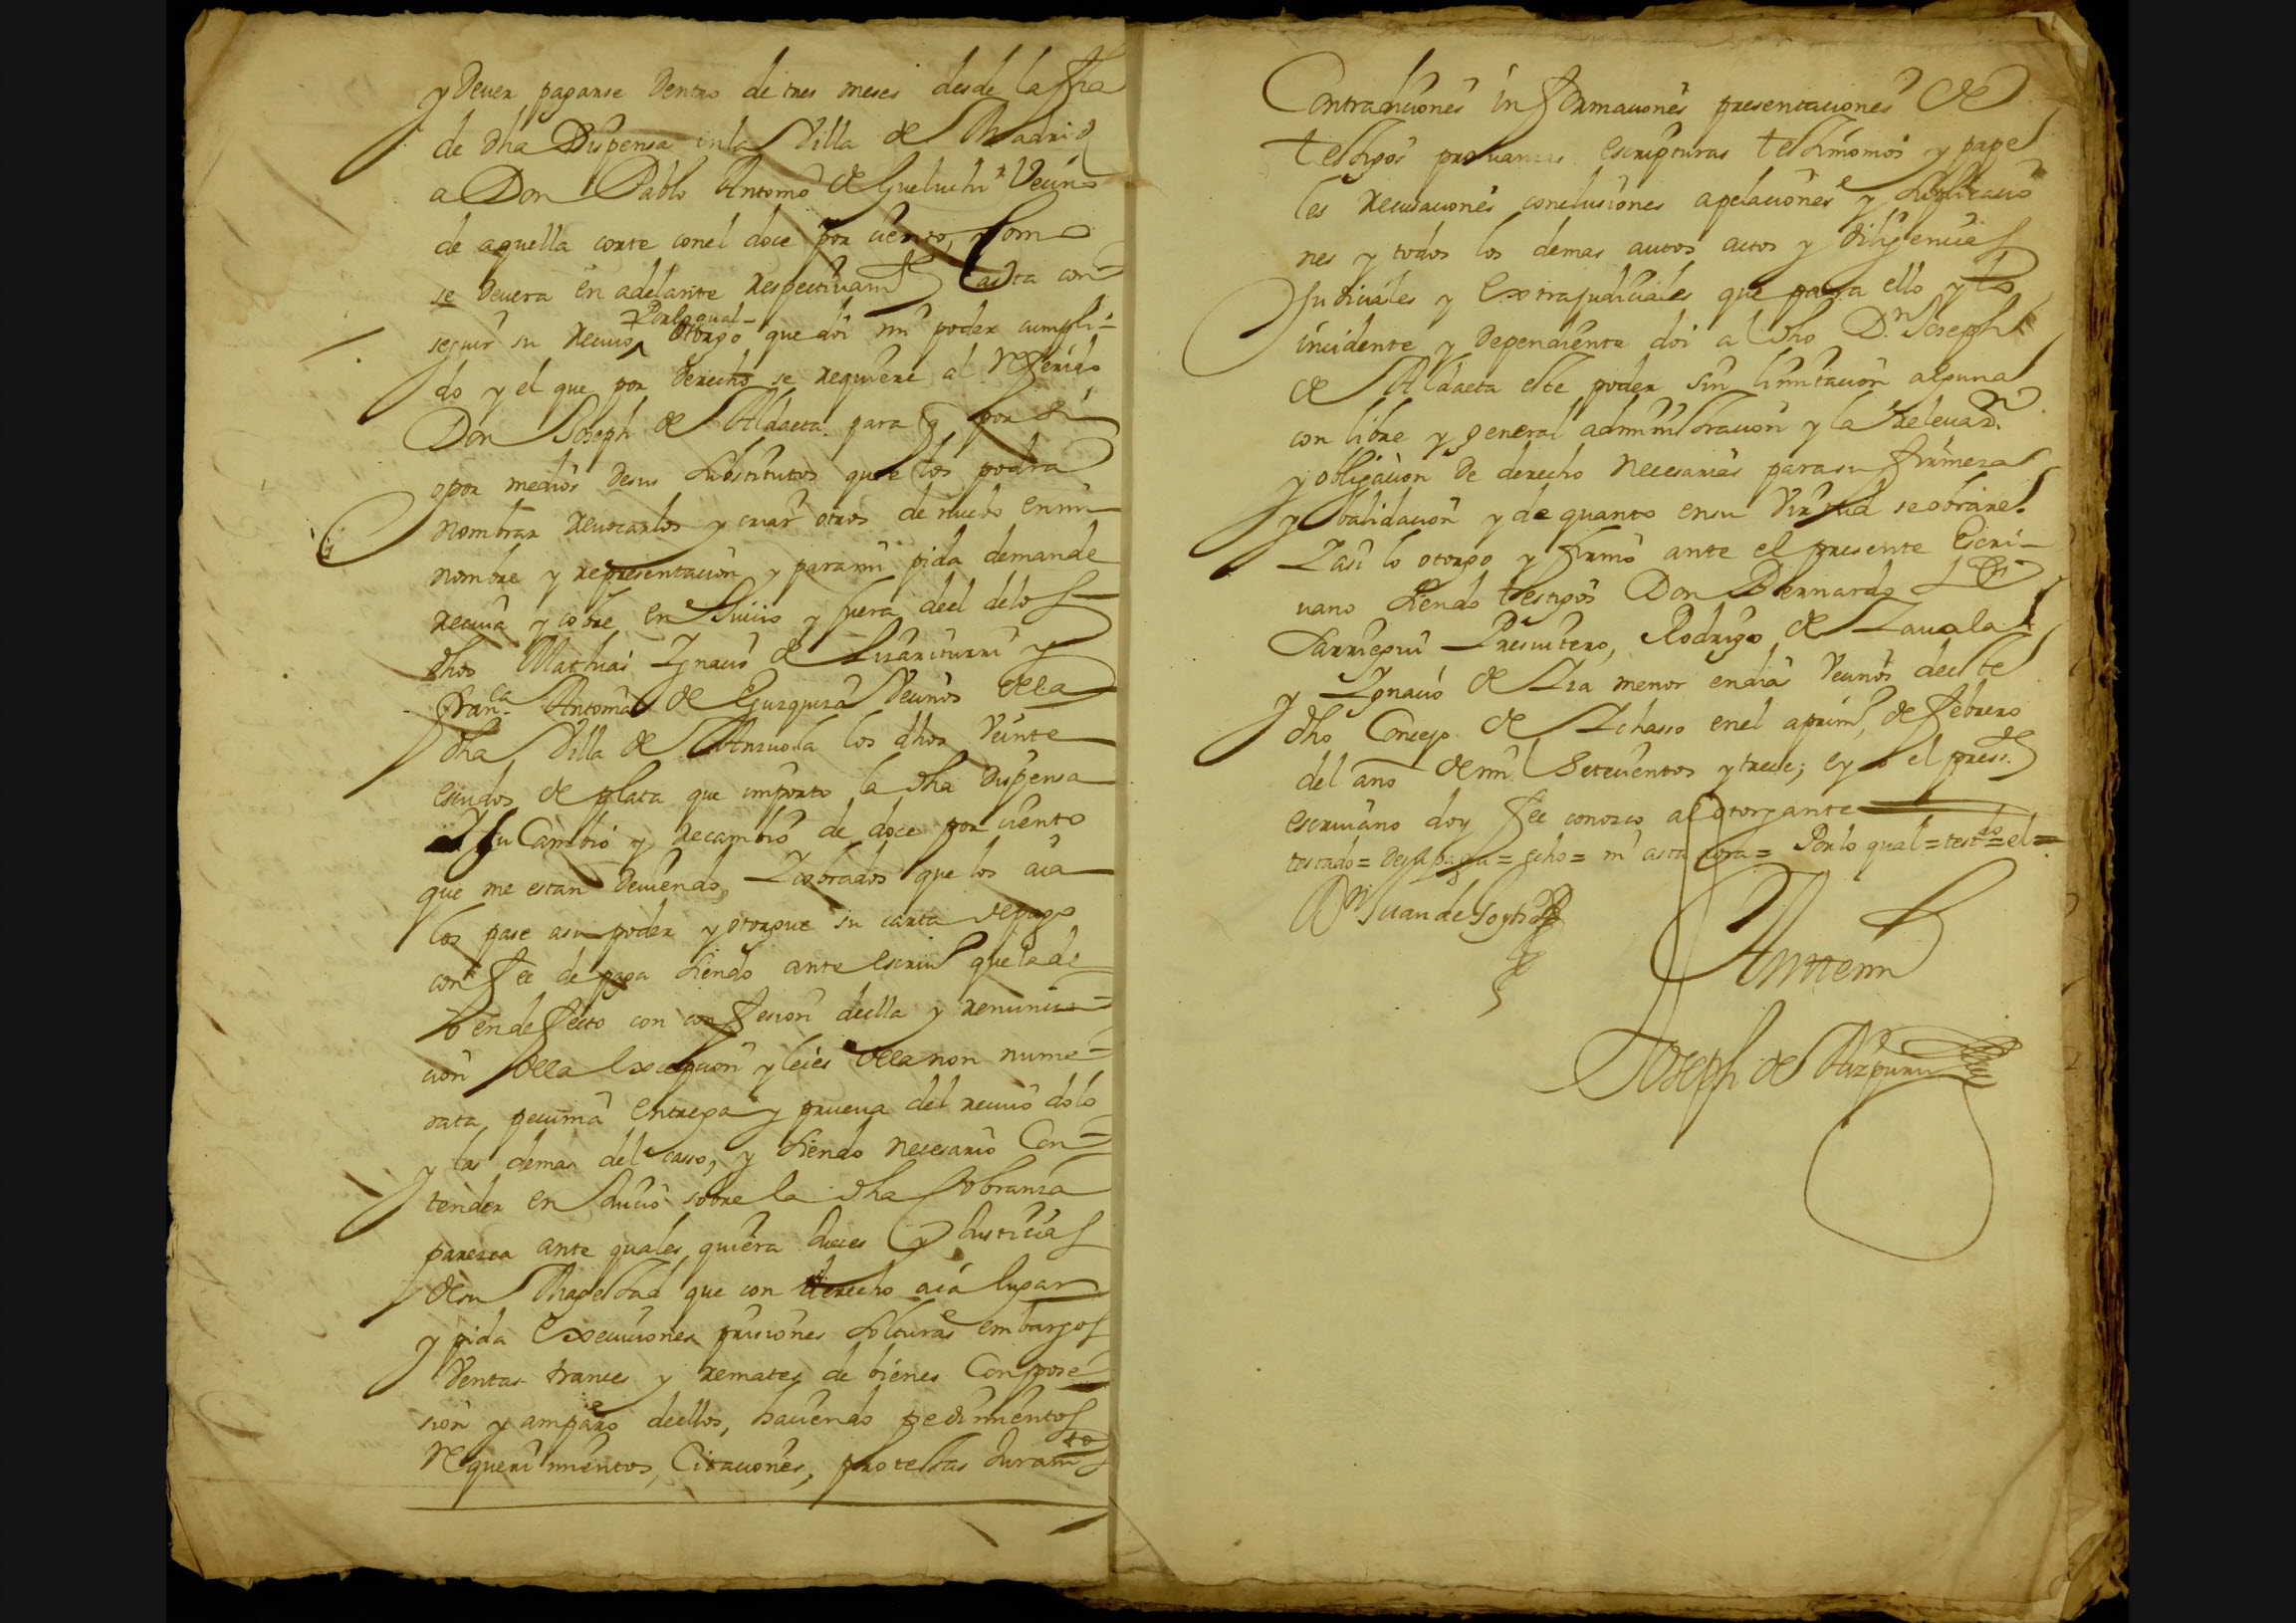 y dever pagarse dentro de tres meses desde la fha
de dha Dispensa en la Villa de Madrid
a Don Pablo Antonio de Vecino
de aquella corte con el doce por ciento, y como
se devera en adelante respectivamte asta con
Por lo qual
seguir su recivo, otorgo que doi mi poder cumpli-
do y el que por derecho se requiere al referido
Don Joseph de Aldaeta para q por si
o por medios desus substitutos que los podra
nombrar revocarlos y criar otros de nuebo en mi
nombre y representacion y para mi pida demande
reciva y cobre en Juicio y fuera deel delos
dhos Mathias Ignacio de Lizariturri y
Franca Antonia de Eguzquiza Vecinos dela
dha Villa de Anzuola los dhos Veinte
escudos de plata que importo la dha dispensa
Y su Cambio y recambio de doce por ciento
que me estan deviendo, Y cobrados que los aia
los pase asu poder y otorgue su carta de pago
con fee de paga siendo ante escriv que la de
o en defecto con confesion deella y renuncia=
cion dela excepcion y leies dela non nume=
rata pecunia entrega y prueva del recivo dolo
y las demas del casso, y siendo necesario Con=
tender en Juicio sobre la dha Cobranza
parezca ante quales quiera Jueces y Justicias
de su Magestad que con derecho aia lugar
y pida execuciones prisiones solturas embargos
Ventas trances y remates de bienes Con pose
sion y amparo deellos, haciendo pedimientos
Requerimientos, Citaciones, protestas Juramto
Contradiciones informaciones presentaciones de
testigos provanzas escripturas testimonios y pape
les recusaciones conclusiones apelaciones y suplicacio
nes y todos los demas autos actos y diligencias
Judiciales y extrajudiciales que para ello y lo
incidente y dependiente doi al dho Dn Joseph
de Aldaeta este poder sin limitacion alguna
con libre y general administracion y la relevaon
y obligacion de derecho necesarias para su firmeza
y validacion y de quanto en su Virtud se obrare.
Y asi lo otorgo y firmo ante el presente Escri-
vano siendo testigos Don Bernardo de
Larriegui Presvitero, Rodrigo de Zavala
y Ignacio de Liza menor en dias Vecinos deeste
dho Concejo de Ichasso en el a primo de febrero
del año de mil Setecientos y trece; e yo el presste
escrivano doy fee conozco al otorgante
testado = = echo = mi asta = Por lo qual = testdo = el =
Dn Juan de
Antemi
Joseph de Aizpuru